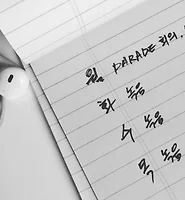 월 PARADE 회의.
화 녹음
수 녹음
목 녹음